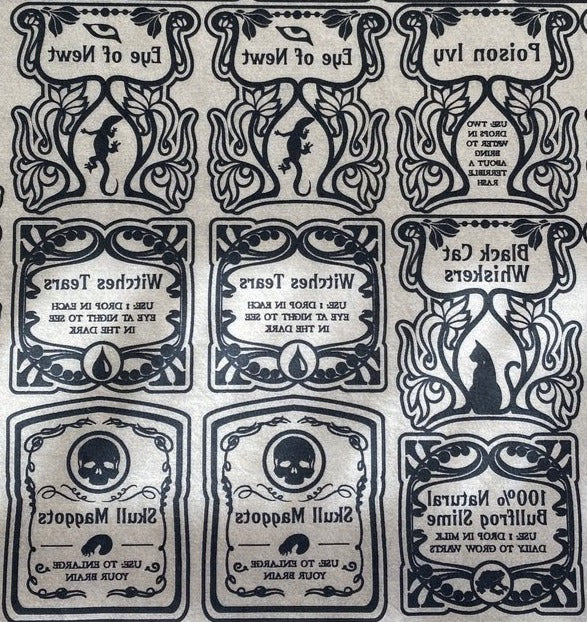 Eye of Newt
Eye of Newt
Poison Ivy
USE: TWO
DROPS IN
WATER TO
BRING
ABOUT A
TERRIBLE
RASH
Witches Tears
USE: 1 DROP IN EACH
EYE AT NIGHT TO SEE
IN THE DARK
Witches Tears
USE: 1 DROP IN EACH
EYE AT NIGHT TO SEE
IN THE DARK
Black Cat
Whiskers
Skull Maggots
USE: TO ENLARGE
YOUR BRAIN
Skull Maggots
USE: TO ENLARGE
YOUR BRAIN
100% Natural
Bullfrog Slime
USE: 1 DROP IN MILK
DAILY TO GROW WARTS